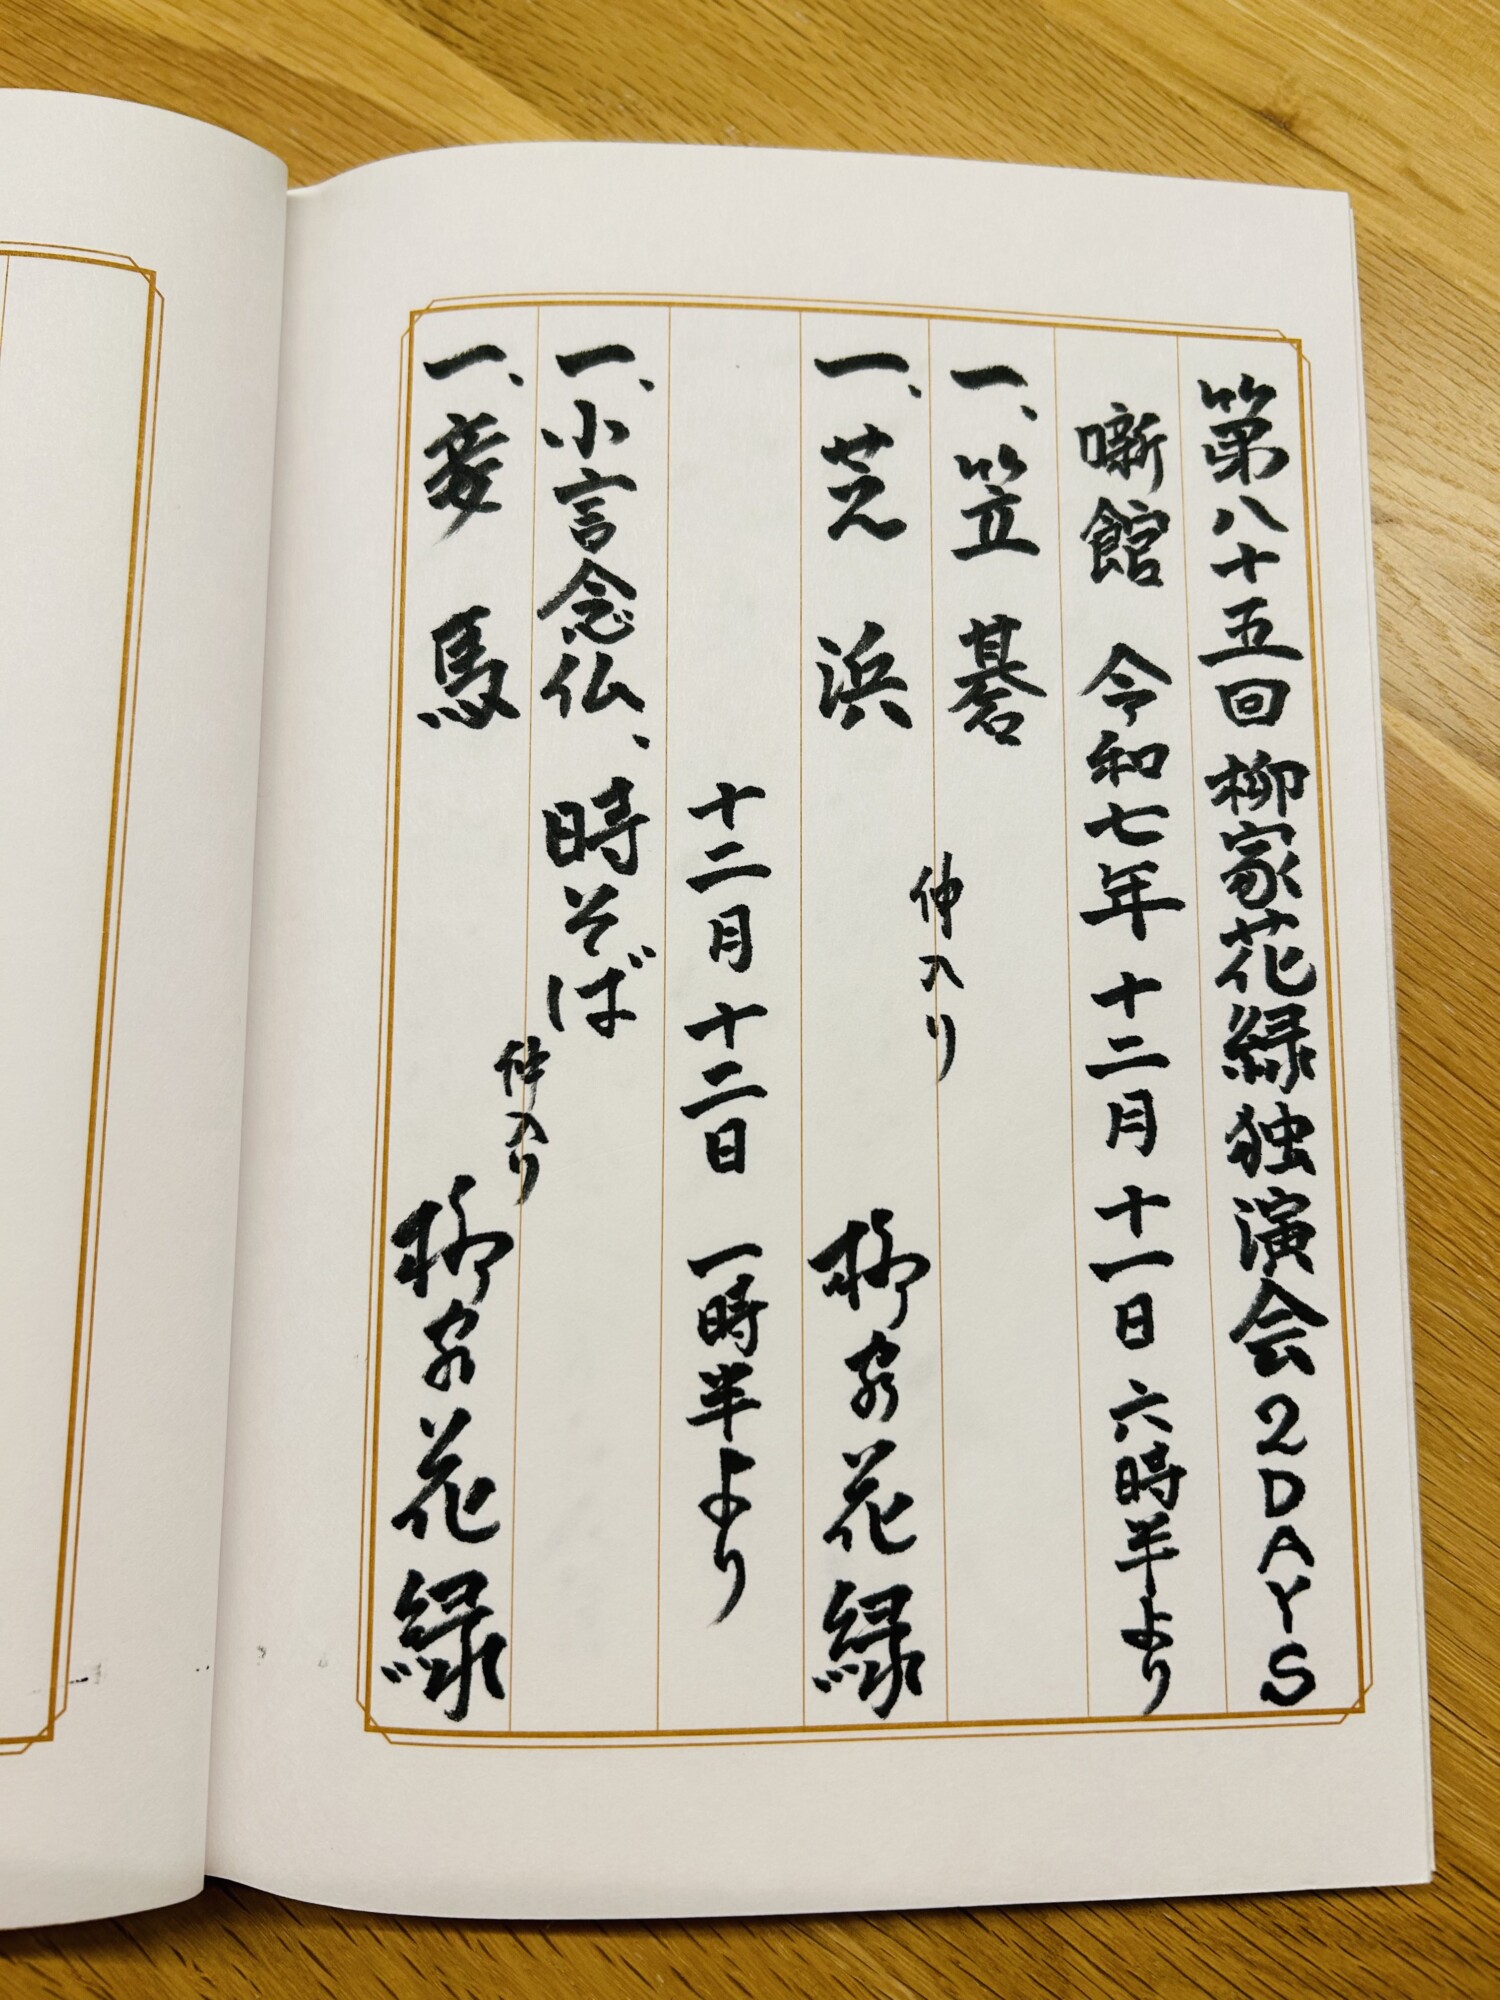 第八十五回 柳家花緑独演会2DAYS
噺館 令和七年 十二月 十一日 六時半より
一、笠碁
仲入り
一、芝浜 柳家花緑
十二月 十二日 一時半より
一、小言念仏、時そば
仲入り
一、妾馬 柳家花緑